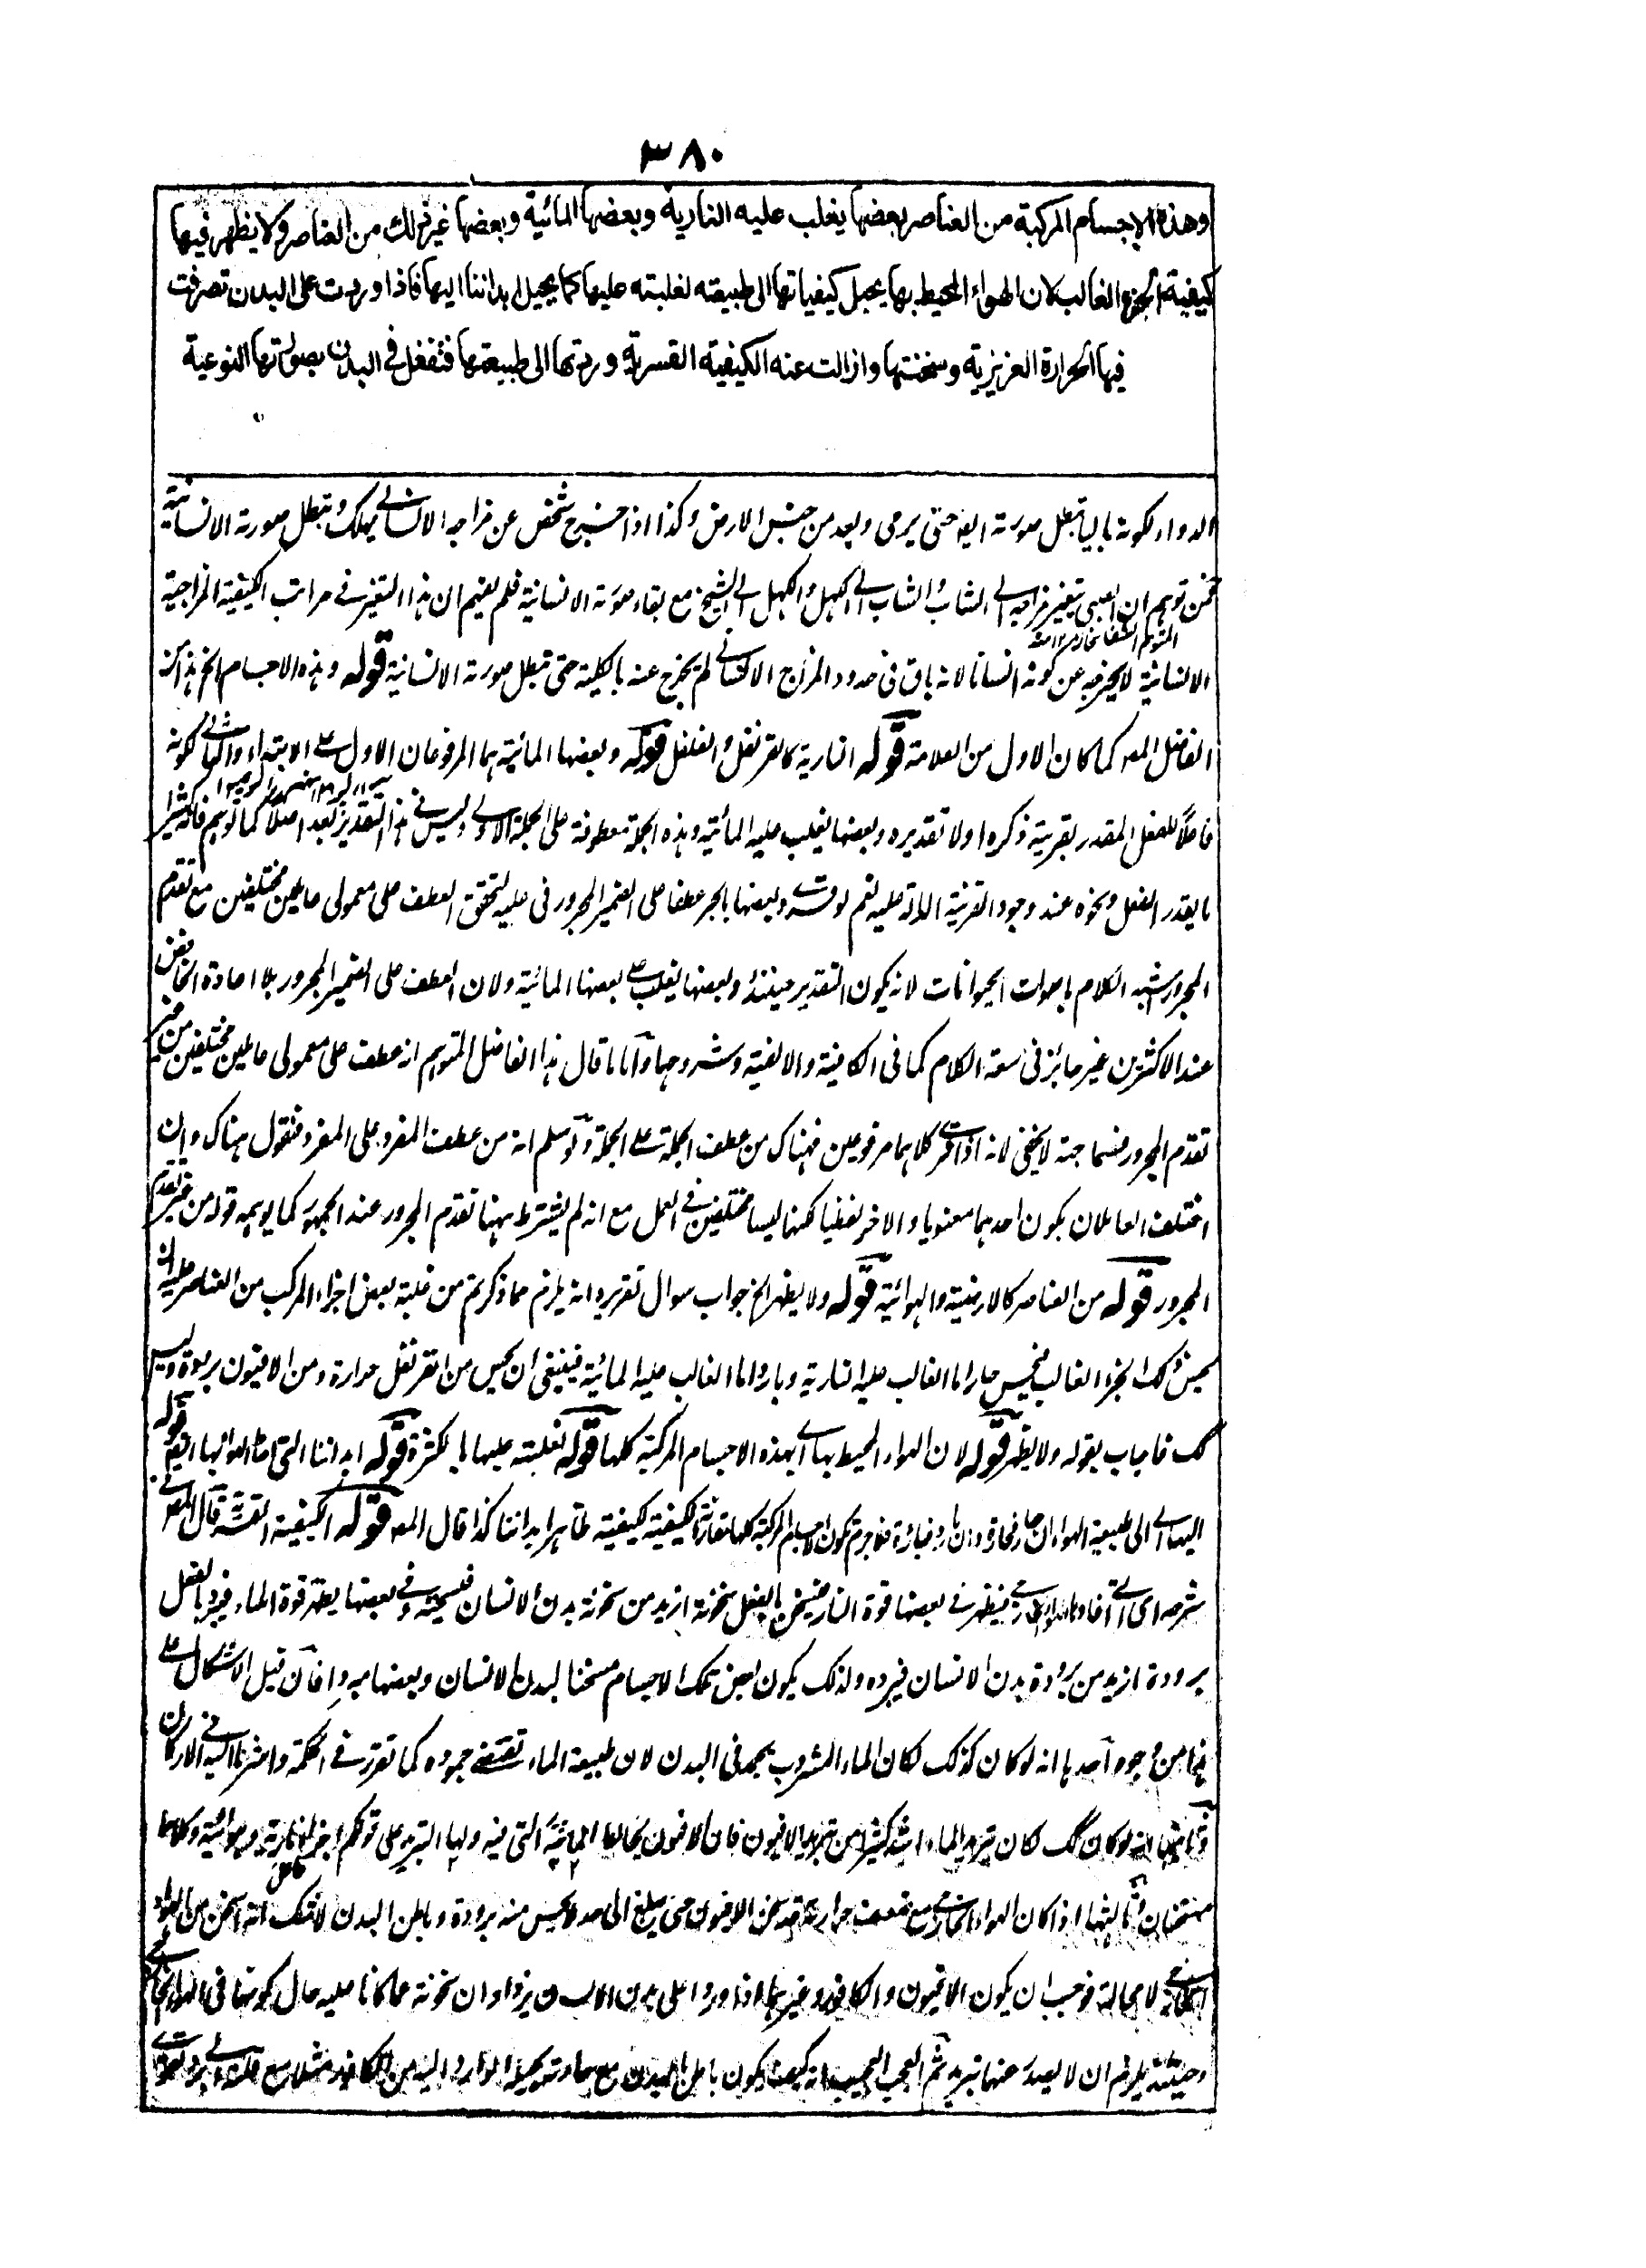 ٣٨٠
وهذه الاجسام المركبة من العناصر بعضها يغلب عليه النارية وبعضها المائية وبعضها غير ذلك من العناصر ولا يظهر فيها
كيفية الجزء الغالب لان الهواء المحيط بها يحيل كيفياتها الى طبيعته لغلبته عليها كما يحيل ابداننا اليها فاذا وردت على البدن تصرفت
فيها الحرارة الغريزية وسخنتها وازالت عنه الكيفية القسرية وردتها الى طبيعتها فتفعل في البدن بصورتها النوعية
الدواء لكونه باليا تبطل صورته ايضا حتى يرمى ويعد من جنس الارض وكذا اذا خرج شخص عن مزاجه الانساني يهلك وتبطل صورته الانسانية
فمن توهم ان الصبي يتغير مزاجه الى الشاب والشاب الى الكهل والكهل الى الشيخ مع بقاء صورته الانسانية فلم يفهم ان هذا التغير في مراتب الكيفية المزاجية
الانسانية لا يخرجه عن كونه انسانا لانه باق في حدود المزاج الانساني لم يخرج عنه بالكلية حتى تبطل صورته الانسانية قوله وهذه الاجسام الخ هذا من
الفاضل المص كما كان الاول من العلامة قوله النارية كالقرنفل والفلفل قوله وبعضها المائية هما المرفوعان الاول على الابتداء والثاني لكونه
فاعلا للفعل المقدر بقرينة ذكره اولا تقديره وبعضها يغلب عليه المائية وهذه الجملة معطوفة على الجملة الاولى وليس في هذا التقدير بعد اصلا كما توهم فانه كثيرا
ما يقدر الفعل ونحوه عند وجود القرينة الدالة عليه نعم لو قرئ وبعضها بالجر عطفا على الضمير المجرور في عليه لتحقق العطف على معمولى عاملين مختلفين مع تقدم
المجرور لشبه الكلام باصوات الحيوانات لانه يكون التقدير حينئذ وبعضها يغلب على بعضها المائية ولان العطف على الضمير المجرور بلا اعادة الخافض
عند الاكثرين غير جائز في سعة الكلام كما في الكافية والالفية وشروحها واما ما قال هذا الفاضل المتوهم انه عطف على معمولى عاملين مختلفين من غير
تقدم المجرور ففساده لا يخفى لانه اذا قرئ كلاهما مرفوعين فهناك من عطف الجملة على الجملة ولو سلم انه من عطف المفرد على المفرد فنقول هناك وان
اختلف العاملان بكون احدهما معنويا والاخر لفظيا لكنهما ليسا مختلفين في العمل مع انه لم يشترط ههنا تقدم المجرور عند الجمهور كما يوهمه قوله من غير تقدم
المجرور قوله من العناصر كالارضية والهوائية قوله ولا يظهر الخ جواب سوال تقريره انه يلزم مما ذكرتم من غلبة بعض اجزاء المركب من العناصر عليه ان
يحس ذلك الجزء الغالب فيحس حارا ما الغالب عليه النارية وباردا ما الغالب عليه المائية فينبغي ان يحس من القرنفل حرارة ومن الافيون برودة وليس
كك فاجاب بقوله ولا يظهر قوله لان الهواء المحيط بها اى بهذه الاجسام المركبة كلها قوله لغلبته عليها بالكثرة قوله ابداننا التي احاط الهواء بها ايضا قوله
شرحه اى فيظهر في بعضها قوة النار فيتسخن بالفعل سخونة ازيد من سخونة بدن الانسان فيسخنه وفي بعضها يظهر قوة الماء فيبرد بالفعل
برودة ازيد من برودة بدن الانسان فيبرده ولذلك يكون بعض تلك الاجسام مسخنا لبدن الانسان وبعضها مبردا فان قيل الاشكال على
هذا من وجوه احدها انه لو كان كذلك لكان الماء المشروب يجمد في البدن لان طبيعة الماء تقتضي جموده كما تقرر في الحكمة واشرنا اليه في الاركان
وثانيها انه لو كان كك لكان تبريد الماء اشد كثيرا من تبريد الافيون فان الافيون يخالط المائية التي فيه ولها التبريد على قولكم اجزاء نارية وهوائية وكلاهما
مسخنان وثالثها اذا كان الهواء الخارجي مع ضعف حرارته قد سخن الافيون حتى يبلغ الى حد لا يحس منه برودة وباطن البدن لا شك انه اسخن من الهواء
الخارجي لا محالة فوجب ان يكون الافيون والكافور وغيرهما اذا وردا على بدن الانسان يزدادان سخونة عما كانا عليه حال كونهما في الهواء الخارجي
وحينئذ يلزم ان لا يصدر عنها تبريد ثم العجب العجيب انه كيف يكون باطن البدن مع حرارته يحيل الوارد اليه من الكافور مثلا مع